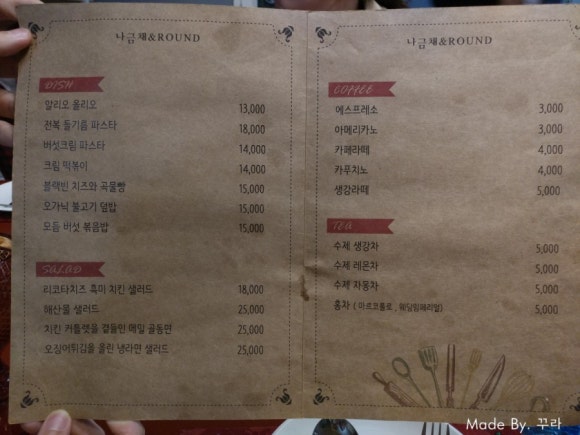 나금채&ROUND
DISH
알리오 올리오 13,000
전복 들기름 파스타 18,000
버섯크림 파스타 14,000
크림 떡볶이 14,000
블랙빈 치즈와 곡물빵 15,000
오가닉 불고기 덮밥 15,000
모듬 버섯 볶음밥 15,000
SALAD
리코타치즈 흑미 치킨 샐러드 18,000
해산물 샐러드 25,000
치킨 커틀렛을 곁들인 메밀 골동면 25,000
오징어튀김을 올린 냉라면 샐러드 25,000
나금채&ROUND
COFFEE
에스프레소 3,000
아메리카노 3,000
카페라떼 4,000
카푸치노 4,000
생강라떼 5,000
TEA
수제 생강차 5,000
수제 레몬차 5,000
수제 자몽차 5,000
홍차 ( 마르코폴로 , 웨딩임페리얼) 5,000
Made By. 꾸라